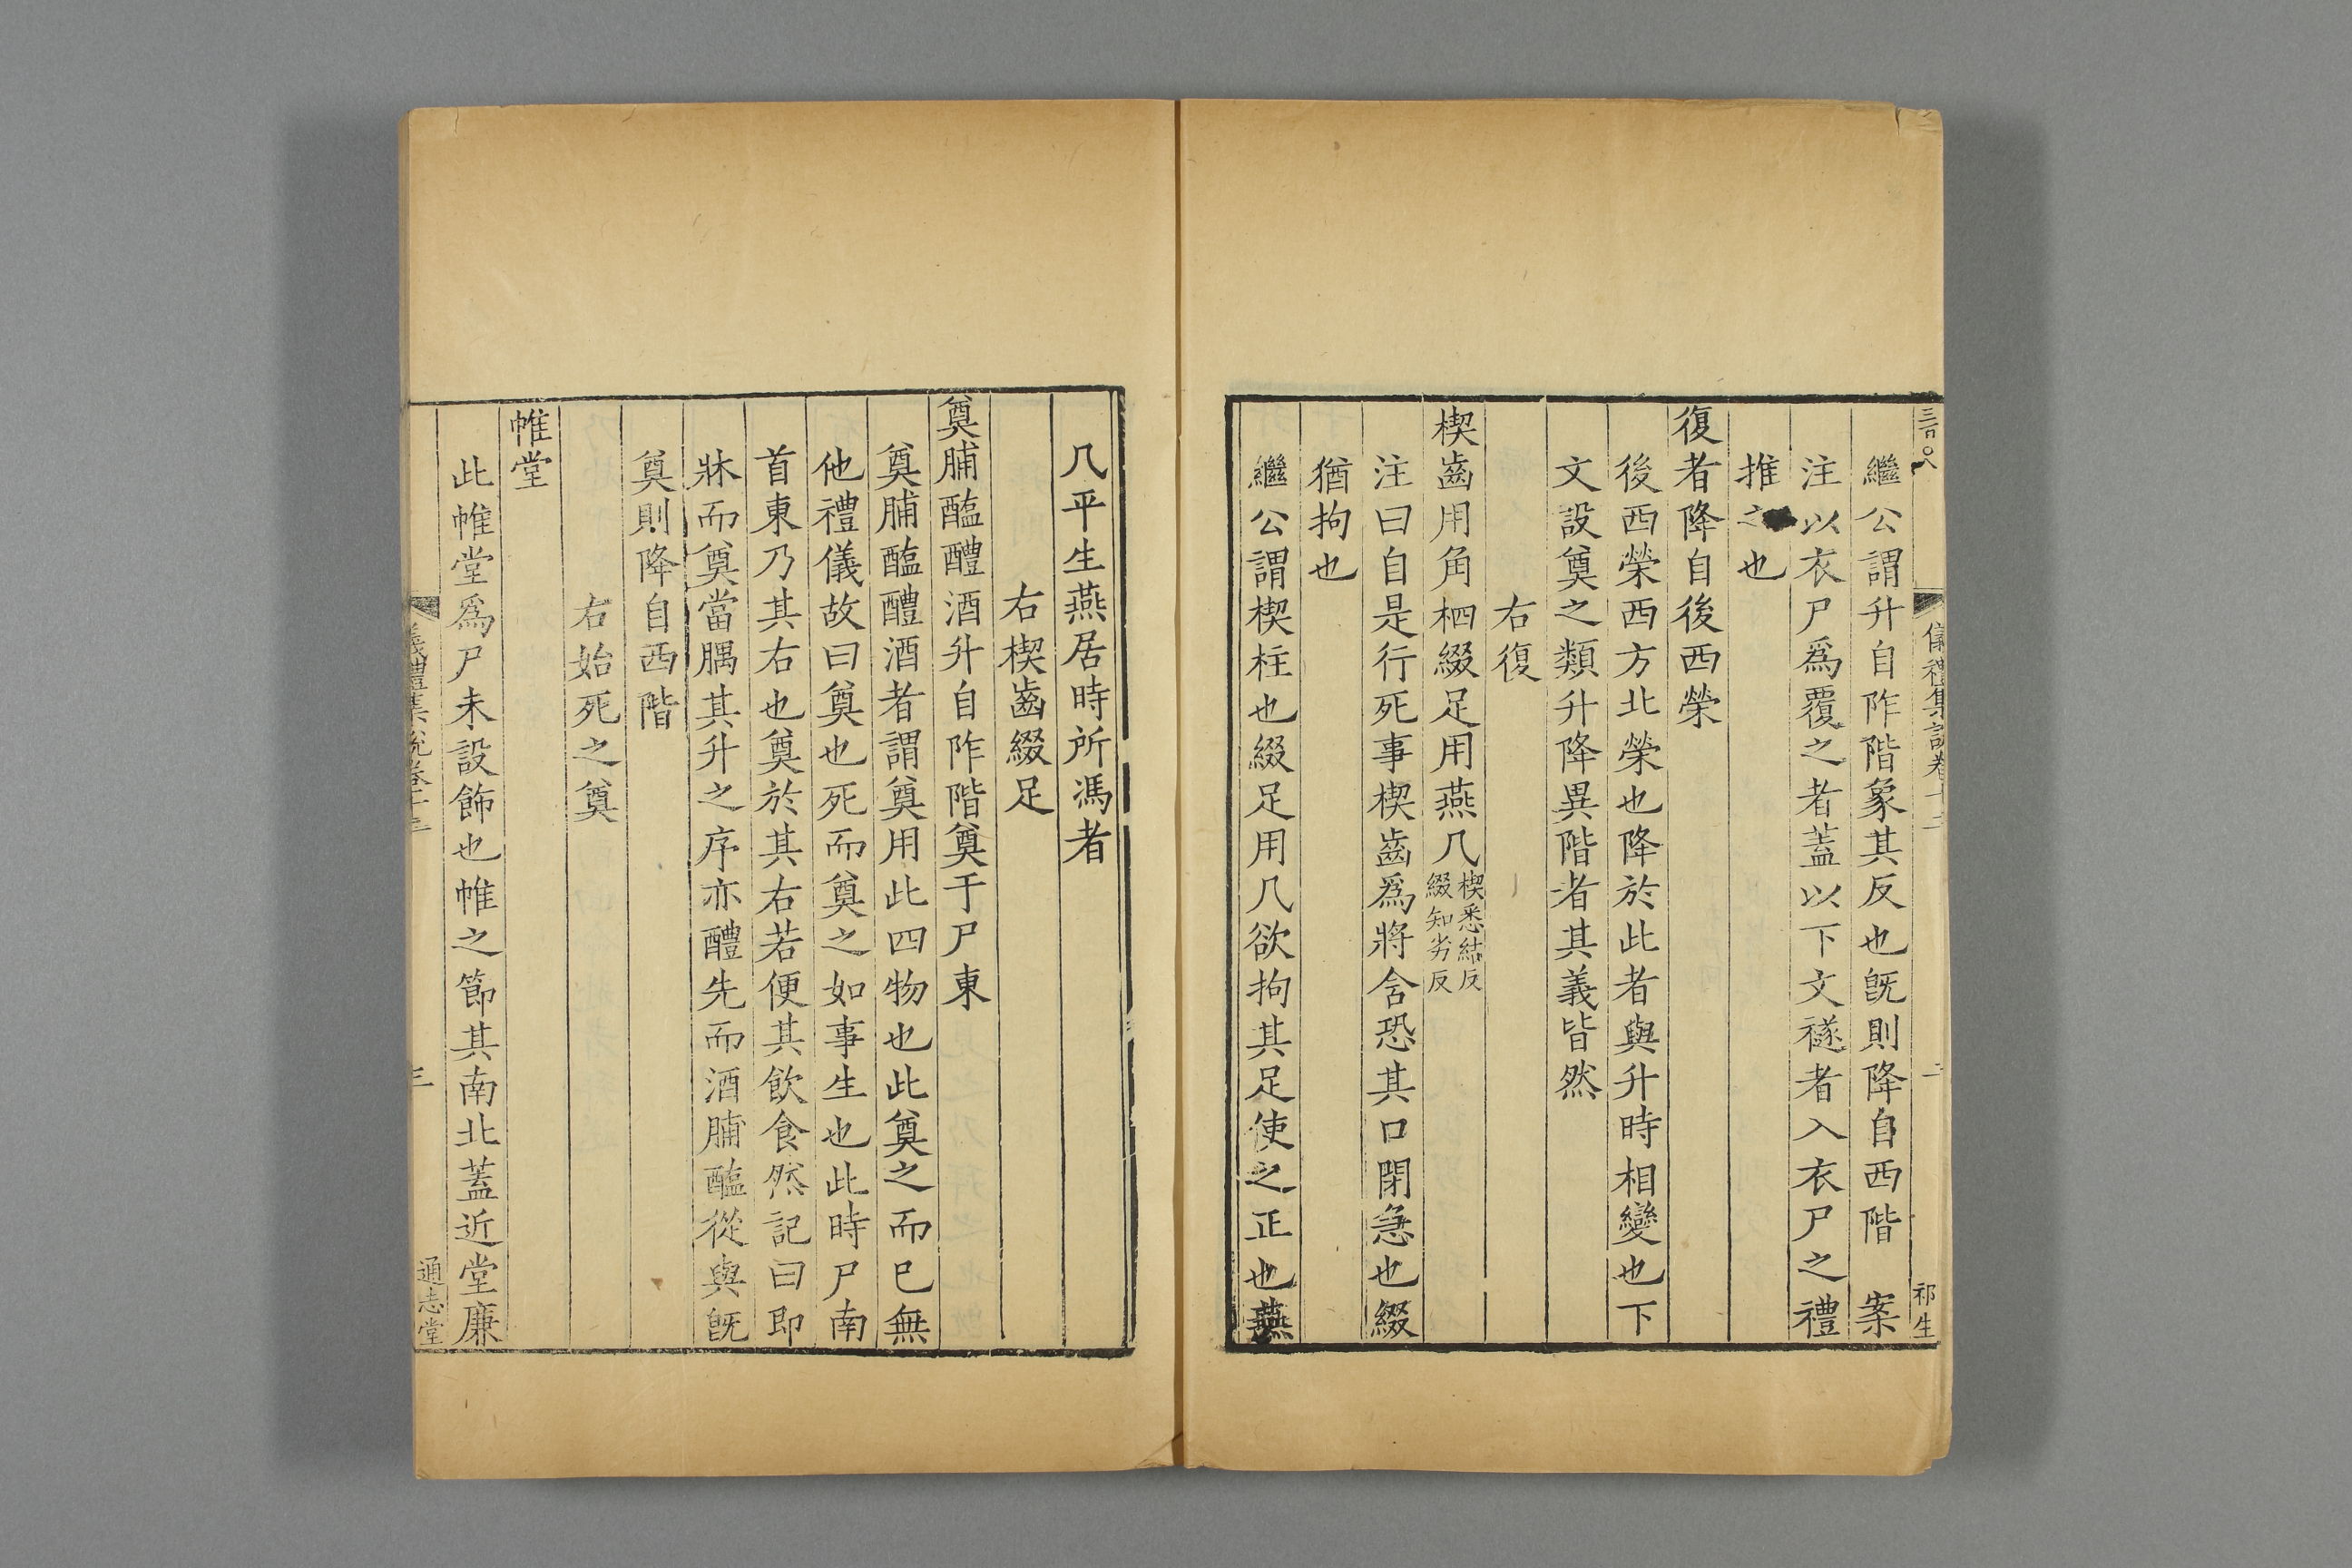 三百〇八
儀禮集說卷十二
二
祁生
繼公謂升自阼階象其反也旣則降自西階　案
注以衣尸爲覆之者蓋以下文襚者入衣尸之禮
推之也
復者降自後西榮
後西榮西方北榮也降於此者與升時相變也下
文設奠之類升降異階者其義皆然
右復
楔齒用角柶綴足用燕几楔悉結反綴知劣反
注曰自是行死事楔齒爲將含恐其口閉急也綴
猶拘也
繼公謂楔柱也綴足用几欲拘其足使之正也燕
几平生燕居時所馮者
右楔齒綴足
奠脯醢醴酒升自阼階奠于尸東
奠脯醢醴酒者謂奠用此四物也此奠之而已無
他禮儀故曰奠也死而奠之如事生也此時尸南
首東乃其右也奠於其右若便其飲食然記曰即
牀而奠當腢其升之序亦醴先而酒脯醢從與旣
奠則降自西階
右始死之奠
帷堂
此帷堂爲尸未設飾也帷之節其南北蓋近堂廉
儀禮集說卷十二
三
通志堂